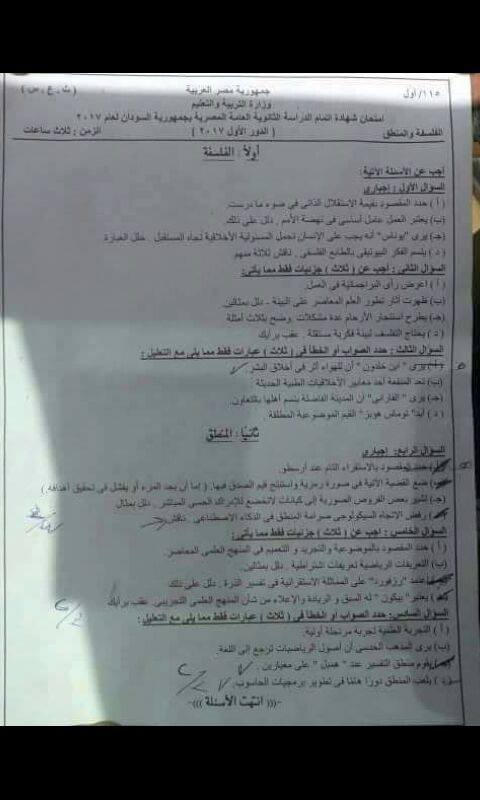 ١١٥/ أول
جمهورية مصر العربية
( ث . ع . س )
وزارة التربية والتعليم
امتحان شهادة إتمام الدراسة الثانوية العامة المصرية بجمهورية السودان لعام ٢٠١٧
الفلسفة والمنطق
( الدور الأول ٢٠١٧ )
الزمن : ثلاث ساعات
أولاً : الفلسفة
أجب عن الأسئلة الآتية :
السؤال الأول : إجباري
( أ ) حدد المقصود بقيمة الاستقلال الذاتي في ضوء ما درست.
(ب) يعتبر العمل عامل أساسي في نهضة الأمم . دلل على ذلك
(جـ) يرى "يوناس" أنه يجب على الإنسان تحمل المسئولية الأخلاقية تجاه المستقبل . حلل العبارة
( د ) يتسم الفكر البيوتيقي بالطابع الفلسفي . ناقش ثلاثة منهم
السؤال الثاني : أجب عن ( ثلاث ) جزئيات فقط مما يأتي:
( أ ) اعرض رأى البراجماتية في العمل.
(ب) ظهرت آثار تطور العلم المعاصر على البيئة - دلل بمثالين.
(جـ) يطرح استئجار الأرحام عدة مشكلات. وضح بثلاث أمثلة
( د ) يحتاج التفلسف لبيئة فكرية مستقلة . عقب برأيك
السؤال الثالث : حدد الصواب أو الخطأ في ( ثلاث ) عبارات فقط مما يلي مع التعليل:
( أ ) يرى " ابن خلدون " أن للهواء أثر في أخلاق البشر .
(ب) تعد المنفعة أحد معايير الأخلاقيات الطبية الحديثة :
(جـ) يرى " الفارابي " أن المدينة الفاضلة يتسم أهلها بالتعاون.
( د ) أيد" توماس هوبز" القيم الموضوعية المطلقة .
ثانياً : المنطق
السؤال الرابع: إجباري
( أ ) حدد المقصود بالاستقراء التام عند أرسطو.
(ب) ضع القضية الآتية في صورة رمزية واستنتج قيم الصدق فيها. ( إما أن يجد المرء أو يفشل في تحقيق أهدافه . )
(جـ) تشير بعض الفروض الصورية إلى كيانات لاتخضع للإدراك الحسي المباشر . دلل بمثال
رفض الاتجاه السيكولوجي صرامة المنطق في الذكاء الاصطناعي . ناقش
السؤال الخامس : أجب عن ( ثلاث ) جزئيات فقط مما يأتي:
( أ ) حدد المقصود بالموضوعية والتجريد و التعميم في المنهج العلمي المعاصر.
(ب) التعريفات الرياضية تعريفات اشتراطية . دلل بمثالين.
"رزفورد" على المماثلة الاستقرائية في تفسير الذرة . دلل على ذلك
يعتبر" بيكون " له السبق و الريادة والإعلاء من شأن المنهج العلمي التجريبي. عقب برأيك
السؤال السادس: حدد الصواب أو الخطأ في ( ثلاث ) عبارات فقط مما يلي مع التعليل:
( أ ) التجربة العلمية تجربة مرتجلة أولية.
(ب) يرى المذهب الحدسي أن أصول الرياضيات ترجع إلى اللغة.
يقوم منطق التفسير عند " همبل " على معيارين.
( د ) يلعب المنطق دورًا هامًا في تطوير برمجيات الحاسوب.
-((( انتهت الأسئلة )))-